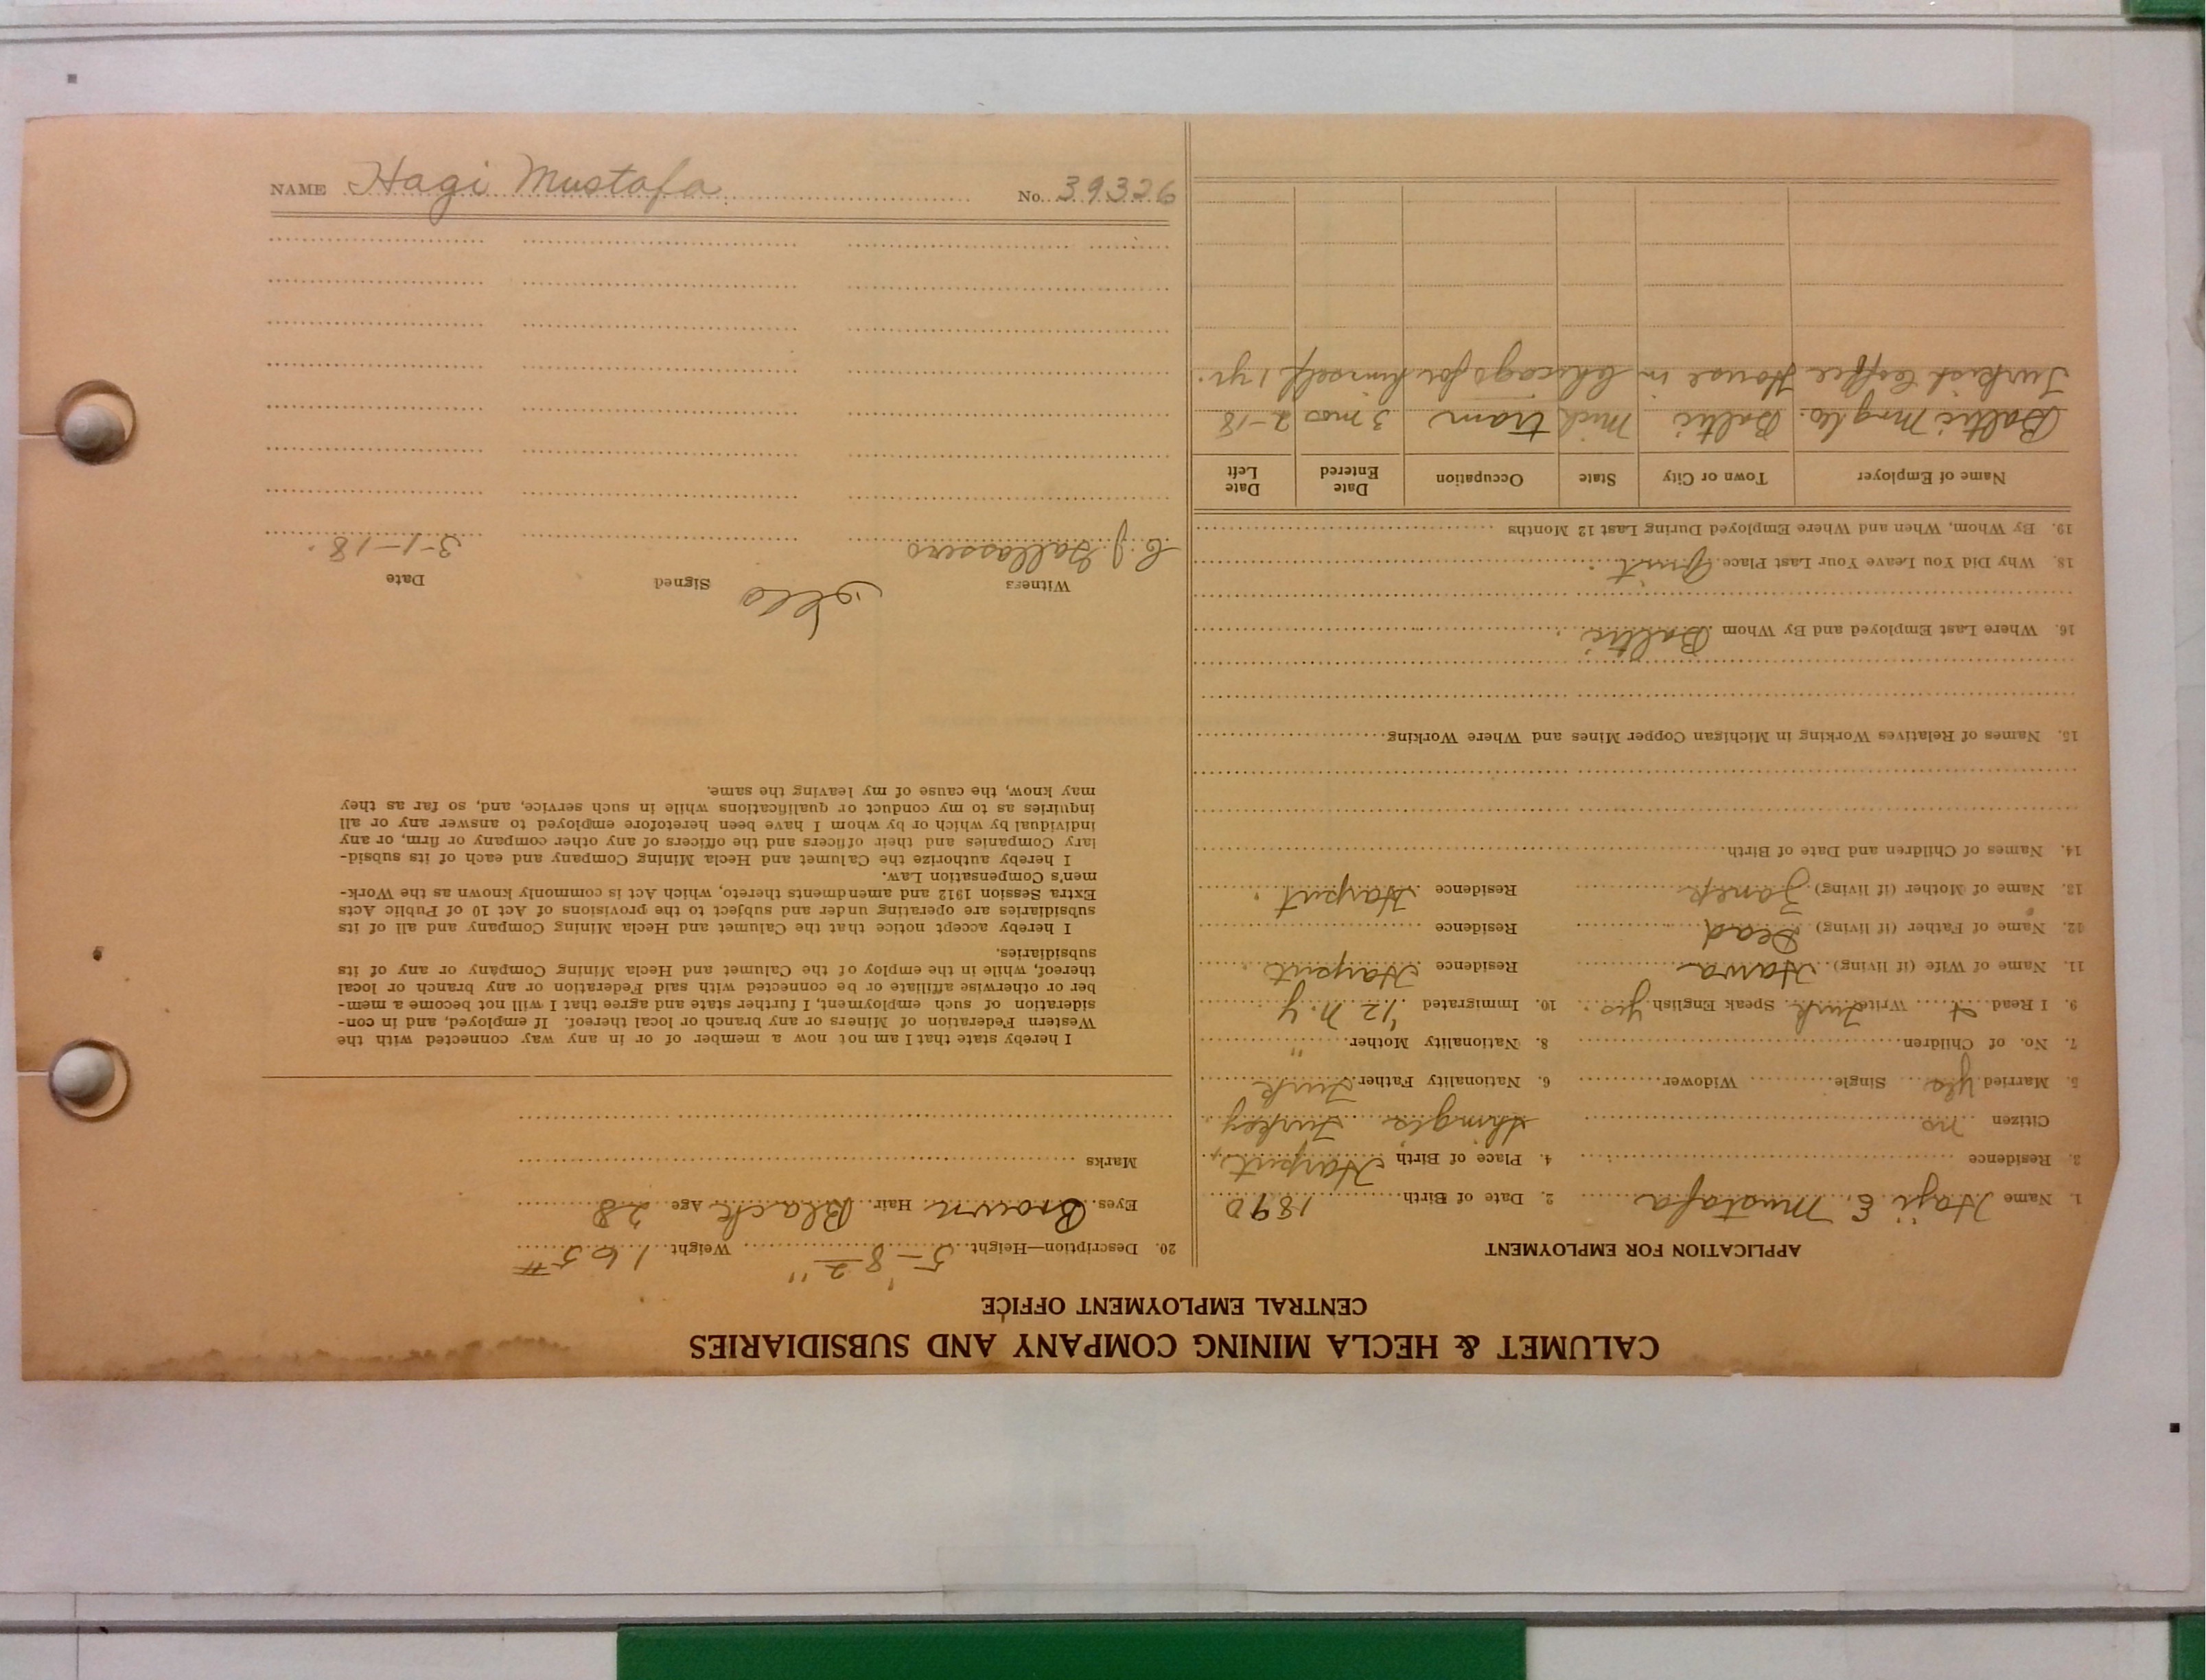 CALUMET & HECLA MINING COMPANY AND SUBSIDIARIES
CENTRAL EMPLOYMENT OFFICE
APPLICATION FOR EMPLOYMENT
1. Name Haji E. Mustafa 2. Date of Birth 1890
3. Residence 4. Place of Birth Harput,
Citizen no Turkey
5. Married Yes Single Widower 6. Nationality Father Turk
7. No. of Children 8. Nationality Mother "
9. I Read + Write Turk. Speak English yes 10. Immigrated '12 N.Y
11. Name of Wife (if living) Hawa Residence Harput
12. Name of Father (if living) Dead Residence
13. Name of Mother (if living) Residence Harput
14. Names of Children and Date of Birth
15. Names of Relatives Working in Michigan Copper Mines and Where Working
16. Where Last Employed and By Whom Baltic
18. Why Did You Leave Your Last Place Quit
19. By Whom, When and Where Employed During Last 12 Months
Name of Employer Town or City State Occupation Date Entered Date Left
Baltic Mng Co. Baltic Mich tram 3 mos 2-18
Turkish Coffee House in Chicago for himself 1 yr.
20. Description—Height 5-8 2" Weight 165 #
Eyes Brown Hair Black Age 28
Marks
I hereby state that I am not now a member of or in any way connected with the
Western Federation of Miners or any branch or local thereof. If employed, and in con-
sideration of such employment, I further state and agree that I will not become a mem-
ber or otherwise affiliate or be connected with said Federation or any branch or local
thereof, while in the employ of the Calumet and Hecla Mining Company or any of its
subsidiaries.
I hereby accept notice that the Calumet and Hecla Mining Company and all of its
subsidiaries are operating under and subject to the provisions of Act 10 of Public Acts
Extra Session 1912 and amendments thereto, which Act is commonly known as the Work-
men's Compensation Law.
I hereby authorize the Calumet and Hecla Mining Company and each of its subsid-
iary Companies and their officers and the officers of any other company or firm, or any
individual by which or by whom I have been heretofore employed to answer any or all
inquiries as to my conduct or qualifications while in such service, and, so far as they
may know, the cause of my leaving the same.
Witness Signed Date
C. J. 3-1-18.
NAME Hagi Mustafa No. 39326